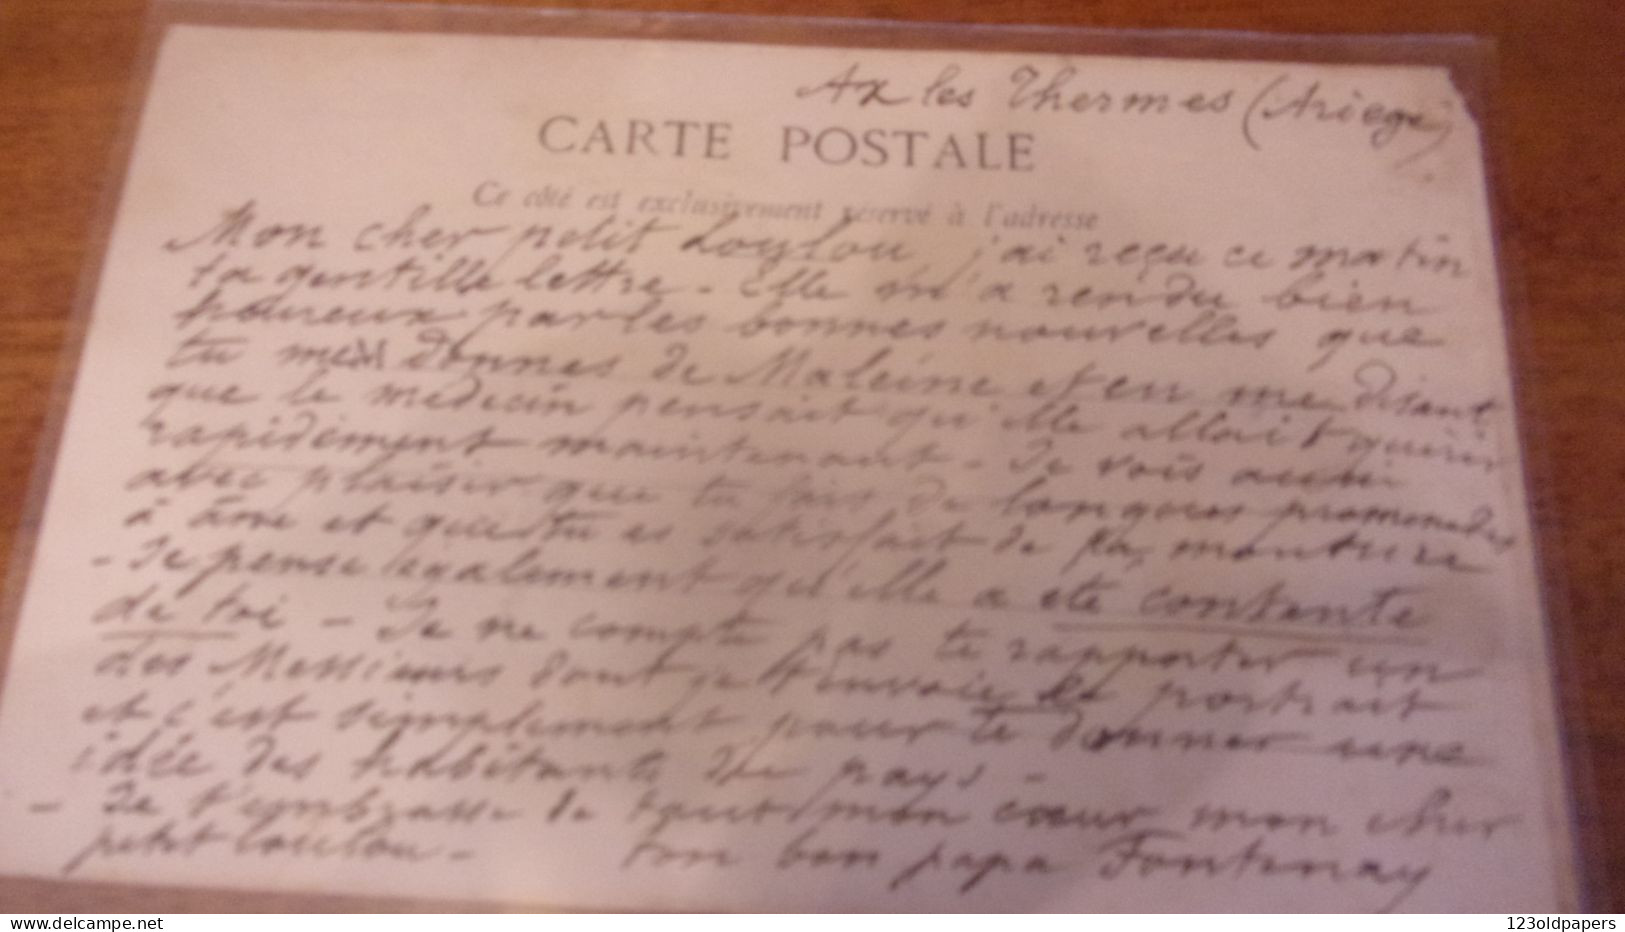 Ax les Thermes (Ariege)
CARTE POSTALE
Ce côté est exclusivement réservé à l'adresse
Mon cher petit Loulou j'ai reçu ce matin
ta gentille lettre - Elle m'a rendu bien
heureux par les bonnes nouvelles que
tu me donnes de Maleine et en me disant
que le medecin pensait qu'elle allait guérir
rapidement maintenant - Je vois aussi
avec plaisir que tu fais de longues promenades
à âne et que tu es satisfait de ta monture
- Je pense également qu'elle a été contente
de toi - Je ne compte pas te rapporter un
des Messieurs dont je t'envoie le portrait
et c'est simplement pour te donner une
idée des habitants du pays -
- Je t'embrasse de tout mon cœur mon cher
petit Loulou - ton bon papa Fontenay
123oldpapers
delcampe.net